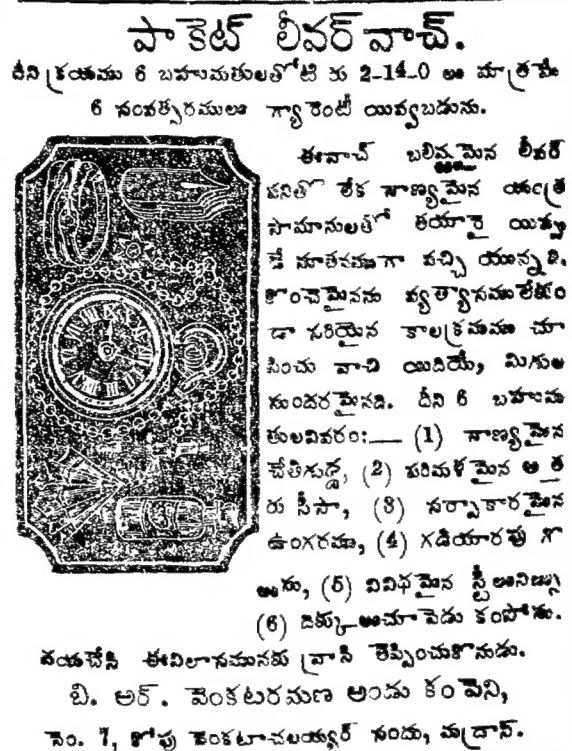 పాకెట్ లీవర్ వాచ్.
దీని క్రయము 6 బహుమతులతోటి రు 2-14-0 లు మాత్రమే
6 సంవత్సరములు గ్యారెంటీ యివ్వబడును.
ఈవాచ్ బలిష్ఠమైన లీవర్
పనితో లేక నాణ్యమైన యంత్ర
సామానులతో తయారై యిప్పు
డే నూతనముగా వచ్చి యున్నది.
కొంచెమైనను వ్యత్యాసములేకుం
డా సరియైన కాలక్రమము చూ
పించు వాచి యిదియే, మిగుల
సుందరమైనది. దీని 6 బహుమ
తులవివరం:— (1) నాణ్యమైన
చేతిగుడ్డ, (2) పరిమళమైన అత్త
రు సీసా, (3) సర్పాకారమైన
ఉంగరము, (4) గడియారపు గొ
లుసు, (5) వివిధమైన స్టీలునిబ్బు
(6) దిక్కులుచూపెడు కంపోసు.
దయచేసి ఈవిలాసమునకు వ్రాసి తెప్పించుకొనుడు.
బి. ఆర్. వెంకటరమణ అండు కంపెని,
నెం. 7, కోపు వెంకటాచలయ్యర్ సందు, మద్రాస్.